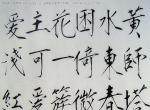 黃師塔
水東春
困倚微
花一簇
主可愛
愛淺紅